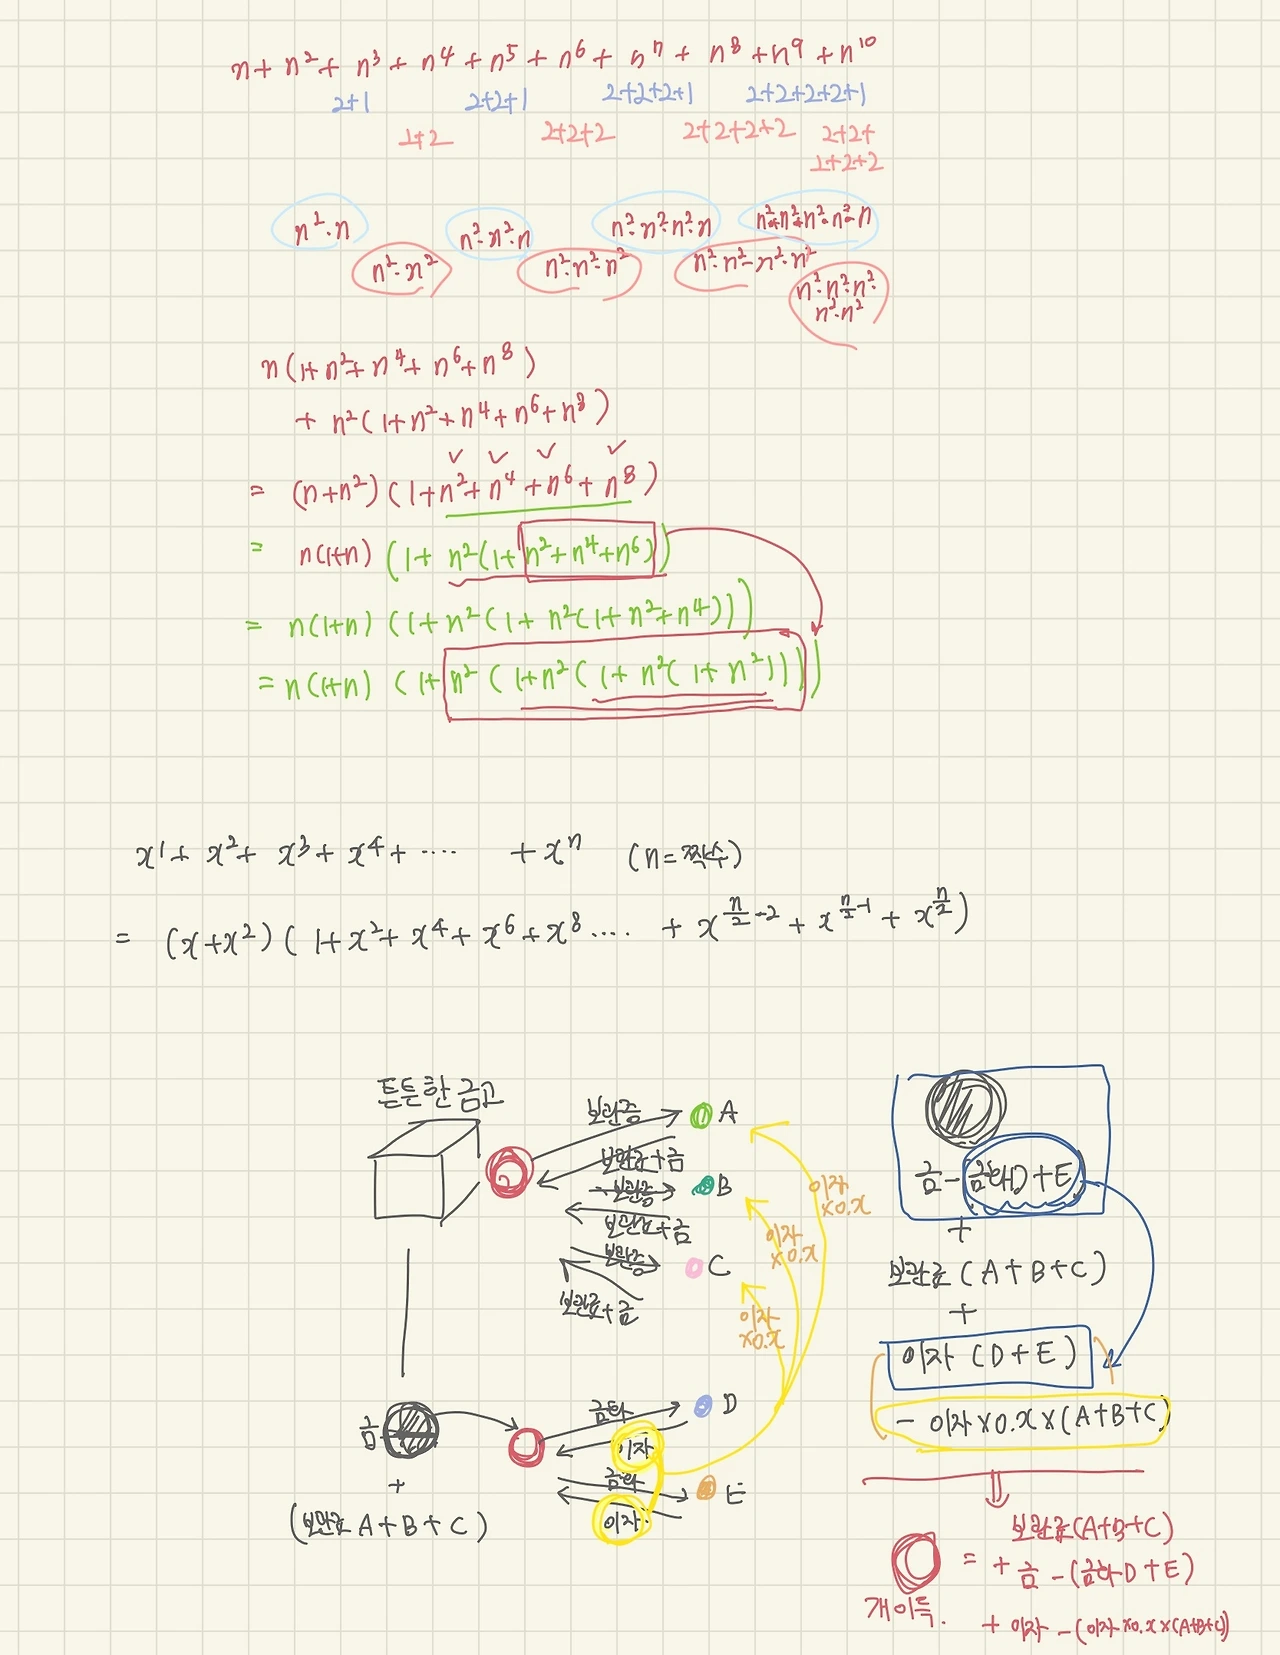 n + n² + n³ + n⁴ + n⁵ + n⁶ + n⁷ + n⁸ + n⁹ + n¹⁰
2+1 2+2+1 2+2+2+1 2+2+2+2+1
1+2 2+2+2 2+2+2+2 2+2+
1+2+2
n²·n n²·n²·n n²·n²·n²·n n²·n²·n²·n²·n
n²·n² n²·n²·n² n²·n²·n²·n² n²·n²·n²·
n²·n²
n(1+n²+n⁴+n⁶+n⁸)
+ n²(1+n²+n⁴+n⁶+n⁸)
= (n+n²)(1+n²+n⁴+n⁶+n⁸)
= n(1+n)(1+n²(1+n²+n⁴+n⁶))
= n(1+n)(1+n²(1+n²(1+n²+n⁴)))
= n(1+n)(1+n²(1+n²(1+n²(1+n²))))
x¹+x²+x³+x⁴+···· +xⁿ (n=짝수)
= (x+x²)(1+x²+x⁴+x⁶+x⁸···· + x^(n/2-2) + x^(n/2-1) + x^(n/2))
튼튼한 금고
보관증 A
보관료+금
보관증 B
보관료+금
보관증 C
보관료+금
이자
×0.x
이자
×0.x
이자
×0.x
금
+
(보관료 A+B+C)
금화 D
이자
금화 E
이자
금-금화D+E
+
보관료(A+B+C)
+
이자 (D+E)
- 이자×0.x×(A+B+C)
개이득.
= 보관료(A+B+C)
+ 금-(금화D+E)
+ 이자-(이자×0.x×(A+B+C))